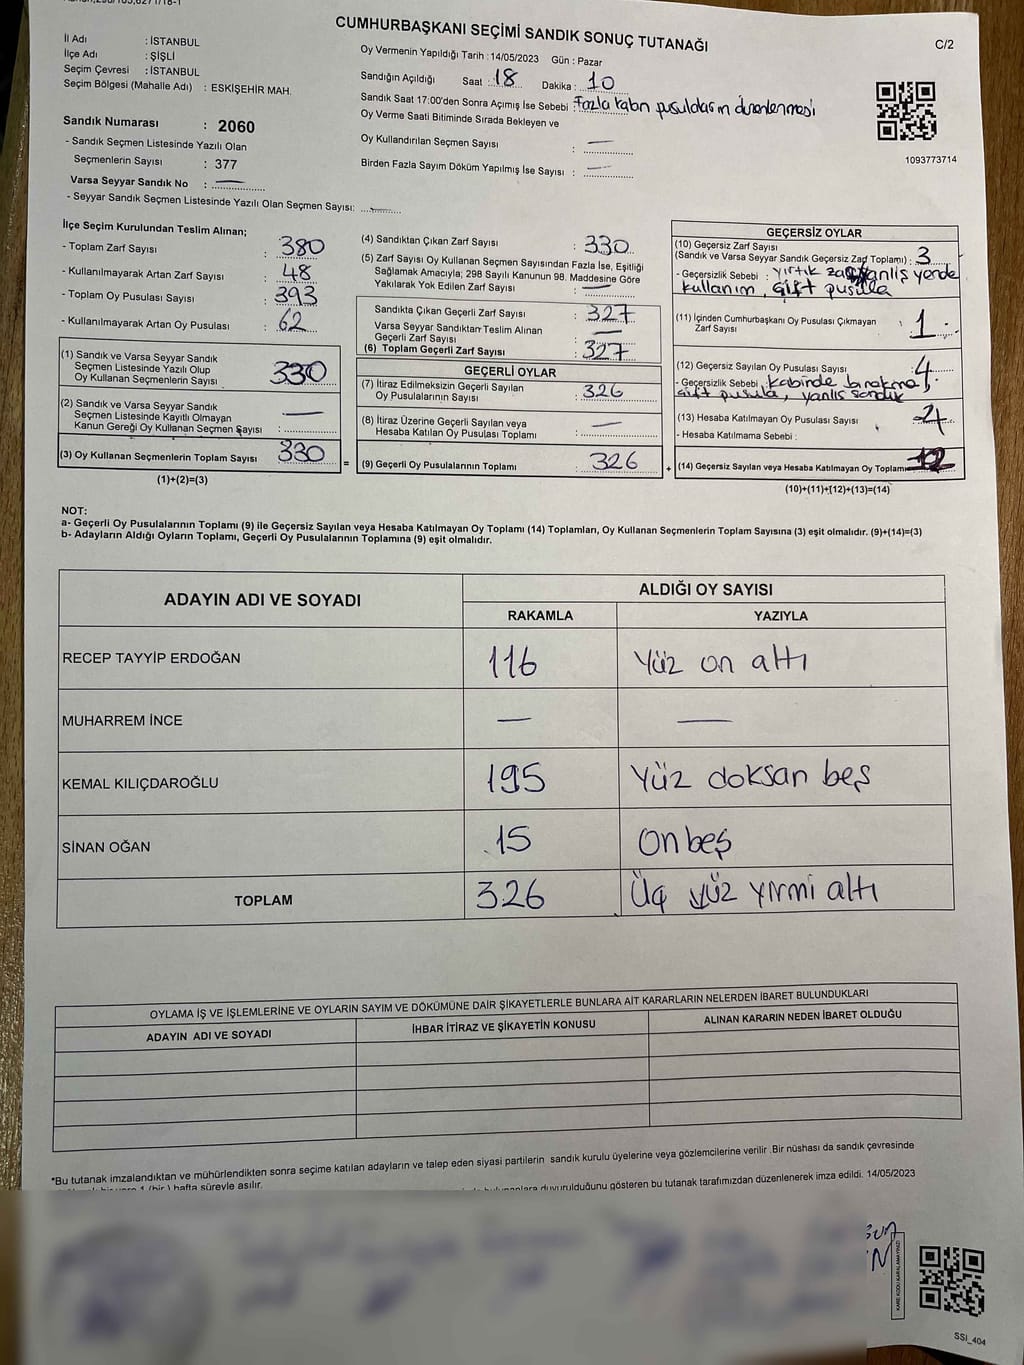 CUMHURBAŞKANI SEÇİMİ SANDIK SONUÇ TUTANAĞI
C/2
İl Adı : İSTANBUL
İlçe Adı : ŞİŞLİ
Seçim Çevresi : İSTANBUL
Seçim Bölgesi (Mahalle Adı) : ESKİŞEHİR MAH.
Sandık Numarası : 2060
- Sandık Seçmen Listesinde Yazılı Olan
Seçmenlerin Sayısı : 377
Varsa Seyyar Sandık No : —
- Seyyar Sandık Seçmen Listesinde Yazılı Olan Seçmen Sayısı: —
Oy Vermenin Yapıldığı Tarih : 14/05/2023 Gün : Pazar
Sandığın Açıldığı Saat : 18 Dakika : 10
Sandık Saat 17:00'den Sonra Açımış İse Sebebi : Fazla kabn pusuldasın düzenlenmesi
Oy Verme Saati Bitiminde Sırada Bekleyen ve
Oy Kullandırılan Seçmen Sayısı : —
Birden Fazla Sayım Döküm Yapılmış İse Sayısı : —
1093773714
İlçe Seçim Kurulundan Teslim Alınan;
- Toplam Zarf Sayısı : 380
- Kullanılmayarak Artan Zarf Sayısı : 48
- Toplam Oy Pusulası Sayısı : 393
- Kullanılmayarak Artan Oy Pusulası : 62
(1) Sandık ve Varsa Seyyar Sandık
Seçmen Listesinde Yazılı Olup
Oy Kullanan Seçmenlerin Sayısı : 330
(2) Sandık ve Varsa Seyyar Sandık
Seçmen Listesinde Kayıtlı Olmayan
Kanun Gereği Oy Kullanan Seçmen Sayısı : —
(3) Oy Kullanan Seçmenlerin Toplam Sayısı : 330
(1)+(2)=(3)
(4) Sandıktan Çıkan Zarf Sayısı : 330
(5) Zarf Sayısı Oy Kullanan Seçmen Sayısından Fazla İse, Eşitliği
Sağlamak Amacıyla; 298 Sayılı Kanunun 98. Maddesine Göre
Yakılarak Yok Edilen Zarf Sayısı : —
Sandıkta Çıkan Geçerli Zarf Sayısı : 327
Varsa Seyyar Sandıktan Teslim Alınan
Geçerli Zarf Sayısı : —
(6) Toplam Geçerli Zarf Sayısı : 327
GEÇERLİ OYLAR
(7) İtiraz Edilmeksizin Geçerli Sayılan
Oy Pusulalarının Sayısı : 326
(8) İtiraz Üzerine Geçerli Sayılan veya
Hesaba Katılan Oy Pusulası Toplamı : —
= (9) Geçerli Oy Pusulalarının Toplamı : 326
GEÇERSİZ OYLAR
(10) Geçersiz Zarf Sayısı
(Sandık ve Varsa Seyyar Sandık Geçersiz Zarf Toplamı) : 3
- Geçersizlik Sebebi : yırtık yanlış yerde
kullanım, çift pusula
(11) İçinden Cumhurbaşkanı Oy Pusulası Çıkmayan
Zarf Sayısı : 1
(12) Geçersiz Sayılan Oy Pusulası Sayısı : 4
- Geçersizlik Sebebi : kabinde bırakma,
çift pusula, yanlış sandık
(13) Hesaba Katılmayan Oy Pusulası Sayısı :
- Hesaba Katılmama Sebebi :
+ (14) Geçersiz Sayılan veya Hesaba Katılmayan Oy Toplamı
(10)+(11)+(12)+(13)=(14)
NOT:
a- Geçerli Oy Pusulalarının Toplamı (9) ile Geçersiz Sayılan veya Hesaba Katılmayan Oy Toplamı (14) Toplamları, Oy Kullanan Seçmenlerin Toplam Sayısına (3) eşit olmalıdır. (9)+(14)=(3)
b- Adayların Aldığı Oyların Toplamı, Geçerli Oy Pusulalarının Toplamına (9) eşit olmalıdır.
ADAYIN ADI VE SOYADI ALDIĞI OY SAYISI
RAKAMLA YAZIYLA
RECEP TAYYİP ERDOĞAN 116 Yüz on altı
MUHARREM İNCE — —
KEMAL KILIÇDAROĞLU 195 Yüz doksan beş
SİNAN OĞAN 15 On beş
TOPLAM 326 Üç yüz yirmi altı
OYLAMA İŞ VE İŞLEMLERİNE VE OYLARIN SAYIM VE DÖKÜMÜNE DAİR ŞİKAYETLERLE BUNLARA AİT KARARLARIN NELERDEN İBARET BULUNDUKLARI
ADAYIN ADI VE SOYADI İHBAR İTİRAZ VE ŞİKAYETİN KONUSU ALINAN KARARIN NEDEN İBARET OLDUĞU
*Bu tutanak imzalandıktan ve mühürlendikten sonra seçime katılan adayların ve talep eden siyasi partilerin sandık kurulu üyelerine veya gözlemcilerine verilir .Bir nüshası da sandık çevresinde
hafta süreyle asılır. duyurulduğunu gösteren bu tutanak tarafımızdan düzenlenerek imza edildi. 14/05/2023
SSI_404